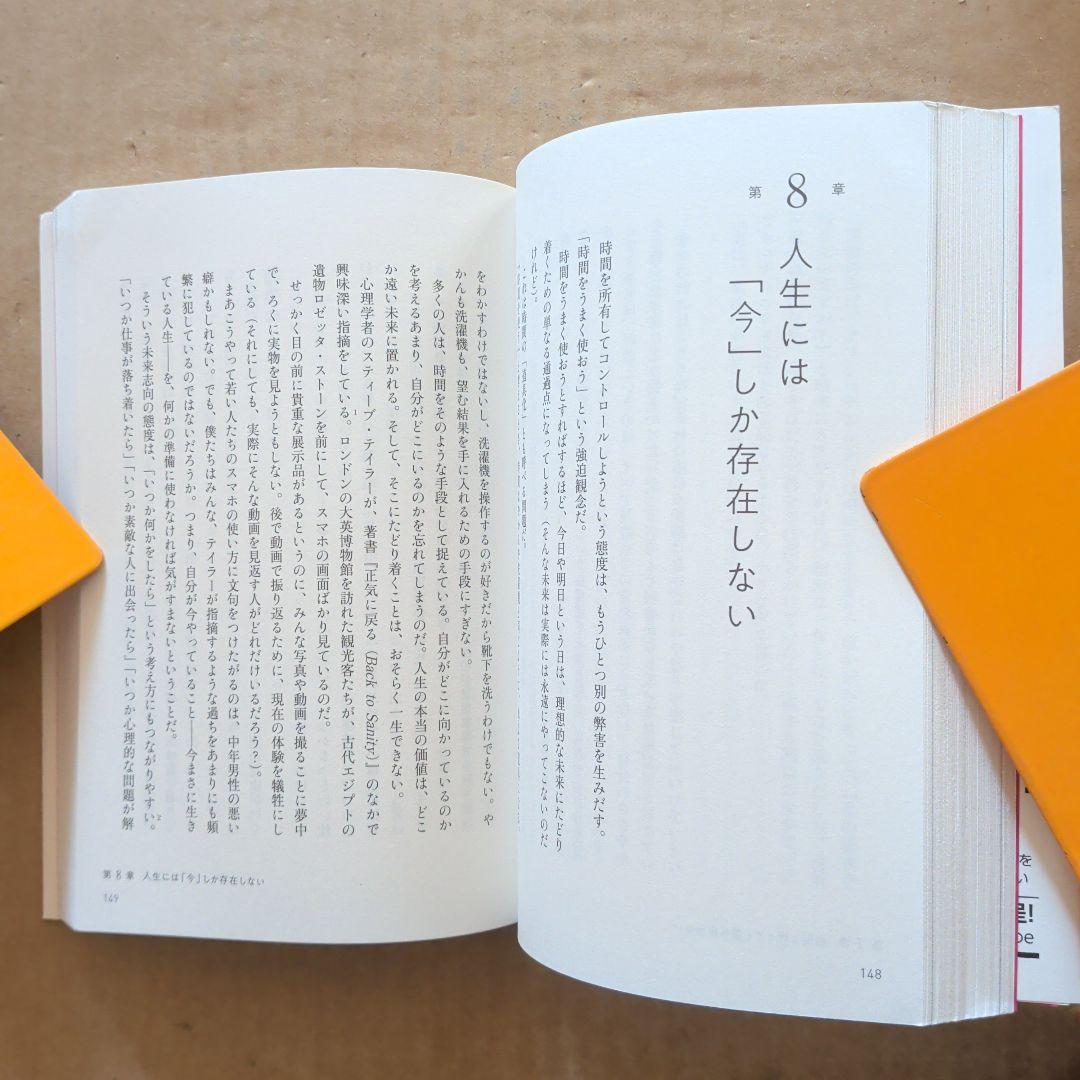 第8章
人生には
「今」しか存在しない
時間を所有してコントロールしようという態度は、もうひとつ別の弊害を生みだす。
「時間をうまく使おう」という強迫観念だ。
時間をうまく使おうとすればするほど、今日や明日という日は、理想的な未来にたどり
着くための単なる通過点になってしまう（そんな未来は実際には永遠にやってこないのだ
けれど）。
148
をわかすわけではないし、洗濯機を操作するのが好きだから靴下を洗うわけでもない。や
かんも洗濯機も、望む結果を手に入れるための手段にすぎない。
多くの人は、時間をそのような手段として捉えている。自分がどこに向かっているのか
を考えるあまり、自分がどこにいるのかを忘れてしまうのだ。人生の本当の価値は、どこ
か遠い未来に置かれる。そして、そこにたどり着くことは、おそらく一生できない。
心理学者のスティーブ・テイラーが、著書『正気に戻る（Back to Sanity）』のなかで
興味深い指摘をしている。1ロンドンの大英博物館を訪れた観光客たちが、古代エジプトの
遺物ロゼッタ・ストーンを前にして、スマホの画面ばかり見ているのだ。
せっかく目の前に貴重な展示品があるというのに、みんな写真や動画を撮ることに夢中
で、ろくに実物を見ようともしない。後で動画で振り返るために、現在の体験を犠牲にし
ている（それにしても、実際にそんな動画を見返す人がどれだけいるだろう？）。
まあこうやって若い人たちのスマホの使い方に文句をつけたがるのは、中年男性の悪い
癖かもしれない。でも、僕たちはみんな、テイラーが指摘するような過ちをあまりにも頻
繁に犯しているのではないだろうか。つまり、自分が今やっていること——今まさに生き
ている人生——を、何かの準備に使わなければ気がすまないということだ。
そういう未来志向の態度は、「いつか何かをしたら」という考え方にもつながりやすい。2
「いつか仕事が落ち着いたら」「いつか素敵な人に出会ったら」「いつか心理的な問題が解
第8章 人生には「今」しか存在しない
149
を
い